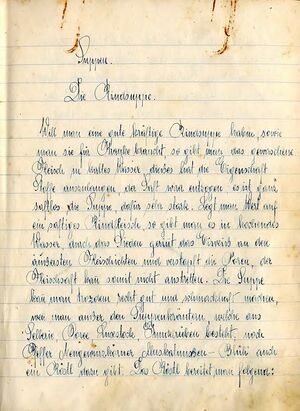 Suppen.
Die Rindsuppe.
Will man eine gute kräftige Rindsuppe haben, sowie
man sie für Kranke braucht, so gibt man das gewaschene
Fleisch in kaltes Wasser, dieses hat die Eigenschaft
Stoffe auszulaugen, der Saft wird entzogen es ist zwar
saftlos die Suppe, dafür sehr stark. Legt man Wert auf
ein saftiges Rindfleisch so gibt man es in kochendes
Wasser, durch das Sieden gerinnt das Eiweiß an den
äußersten Fleischschichten und verstopft die Poren, der
Fleischsaft kann somit nicht austretten. Die Suppe
kan man trozdem recht gut und schmackhaft machen,
wen man außer den Suppenkräutern, welche aus
Sellerie, Poree besteht, noch
Pfeffer Neugewürzkörner Muskatnuss-Blüh auch
ein Rästl dazu gibt. Das Rästl bereitet man folgend: